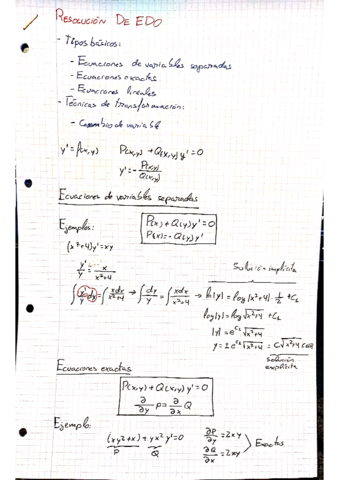 RESOLUCIÓN DE EDO
- Tipos básicos:
- Ecuaciones de variables separadas
- Ecuaciones exactas
- Ecuaciones lineales
- Técnicas de transformación:
- Cambio de variable
y' = f(x,y) P(x,y) + Q(x,y) y' = 0
y' = - P(x,y)/Q(x,y)
Ecuaciones de variables separadas
P(x) + Q(y) y' = 0
P(x) = - Q(y) y'
Ejemplos:
(x²+4)y' = xy
y'/y = x/(x²+4)
Solución implícita
∫ y'/y dx = ∫ xdx/(x²+4) → ∫ dy/y = ∫ xdx/(x²+4) → log|y| = log|x²+4| · 1/2 + C₁
log|y| = log√x²+4 + C₁
|y| = e^C₁ √x²+4
y = ± e^C₁ √x²+4 = C√x²+4, C∈ℝ
solución explícita
Ecuaciones exactas
P(x,y) + Q(x,y) y' = 0
∂/∂y P = ∂/∂x Q
Ejemplo:
(xy²+x) + yx² y' = 0
P Q
∂P/∂y = 2xy
∂Q/∂x = 2xy
Exactas